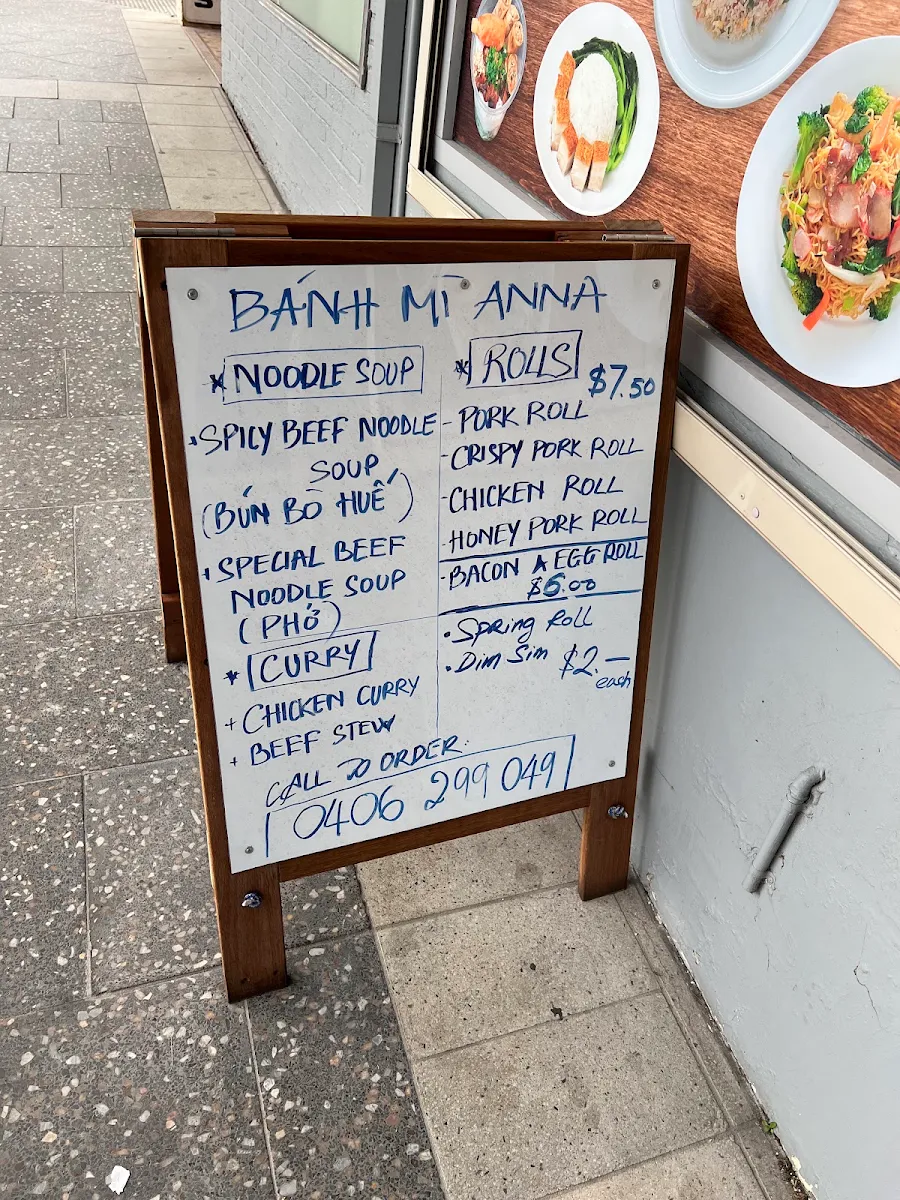 BÁNH MÌ ANNA
* NOODLE SOUP
SPICY BEEF NOODLE
SOUP
(BÚN BÒ HUẾ)
+ SPECIAL BEEF
NOODLE SOUP
(PHỞ)
* CURRY
+ CHICKEN CURRY
+ BEEF STEW
* ROLLS
$7.50
- PORK ROLL
- CRISPY PORK ROLL
- CHICKEN ROLL
- HONEY PORK ROLL
- BACON & EGG ROLL
$6.00
• Spring Roll
• Dim Sim $2.—
each
CALL TO ORDER:
0406 299 049